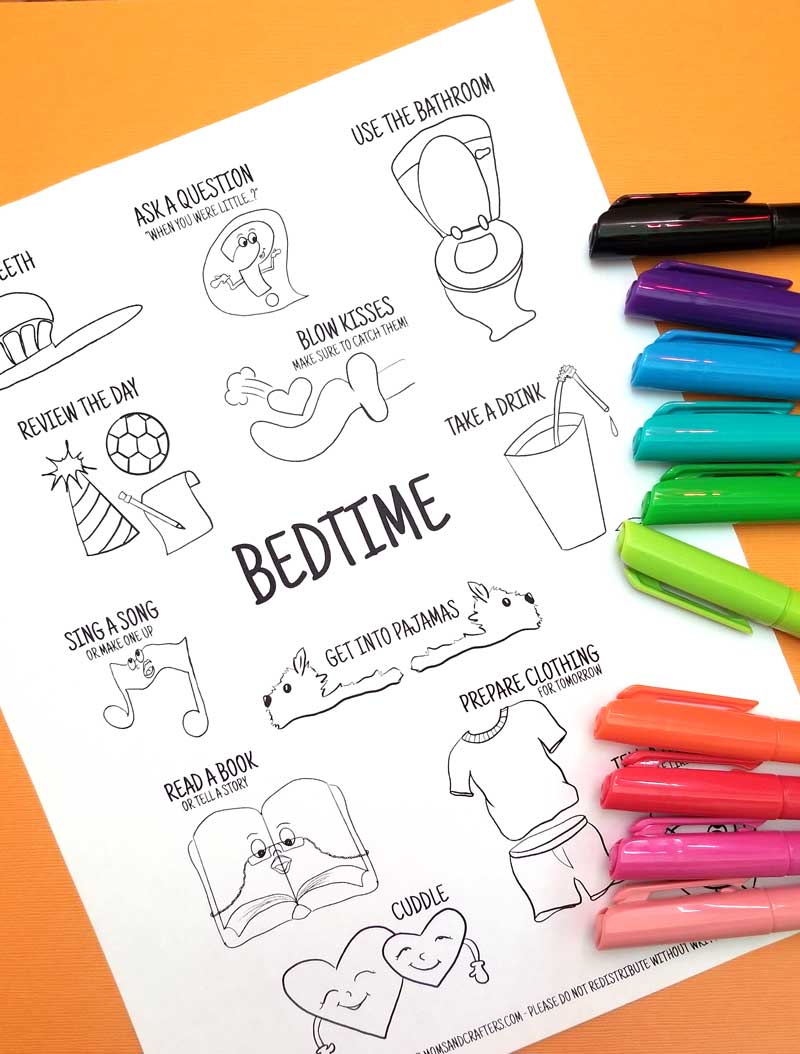 USE THE BATHROOM
ASK A QUESTION
"WHEN YOU WERE LITTLE..?"
EETH
BLOW KISSES
MAKE SURE TO CATCH THEM!
REVIEW THE DAY
TAKE A DRINK
BEDTIME
SING A SONG
OR MAKE ONE UP
GET INTO PAJAMAS
PREPARE CLOTHING
FOR TOMORROW
READ A BOOK
OR TELL A STORY
CUDDLE
MOMSANDCRAFTERS.COM - PLEASE DO NOT REDISTRIBUTE WITHOUT